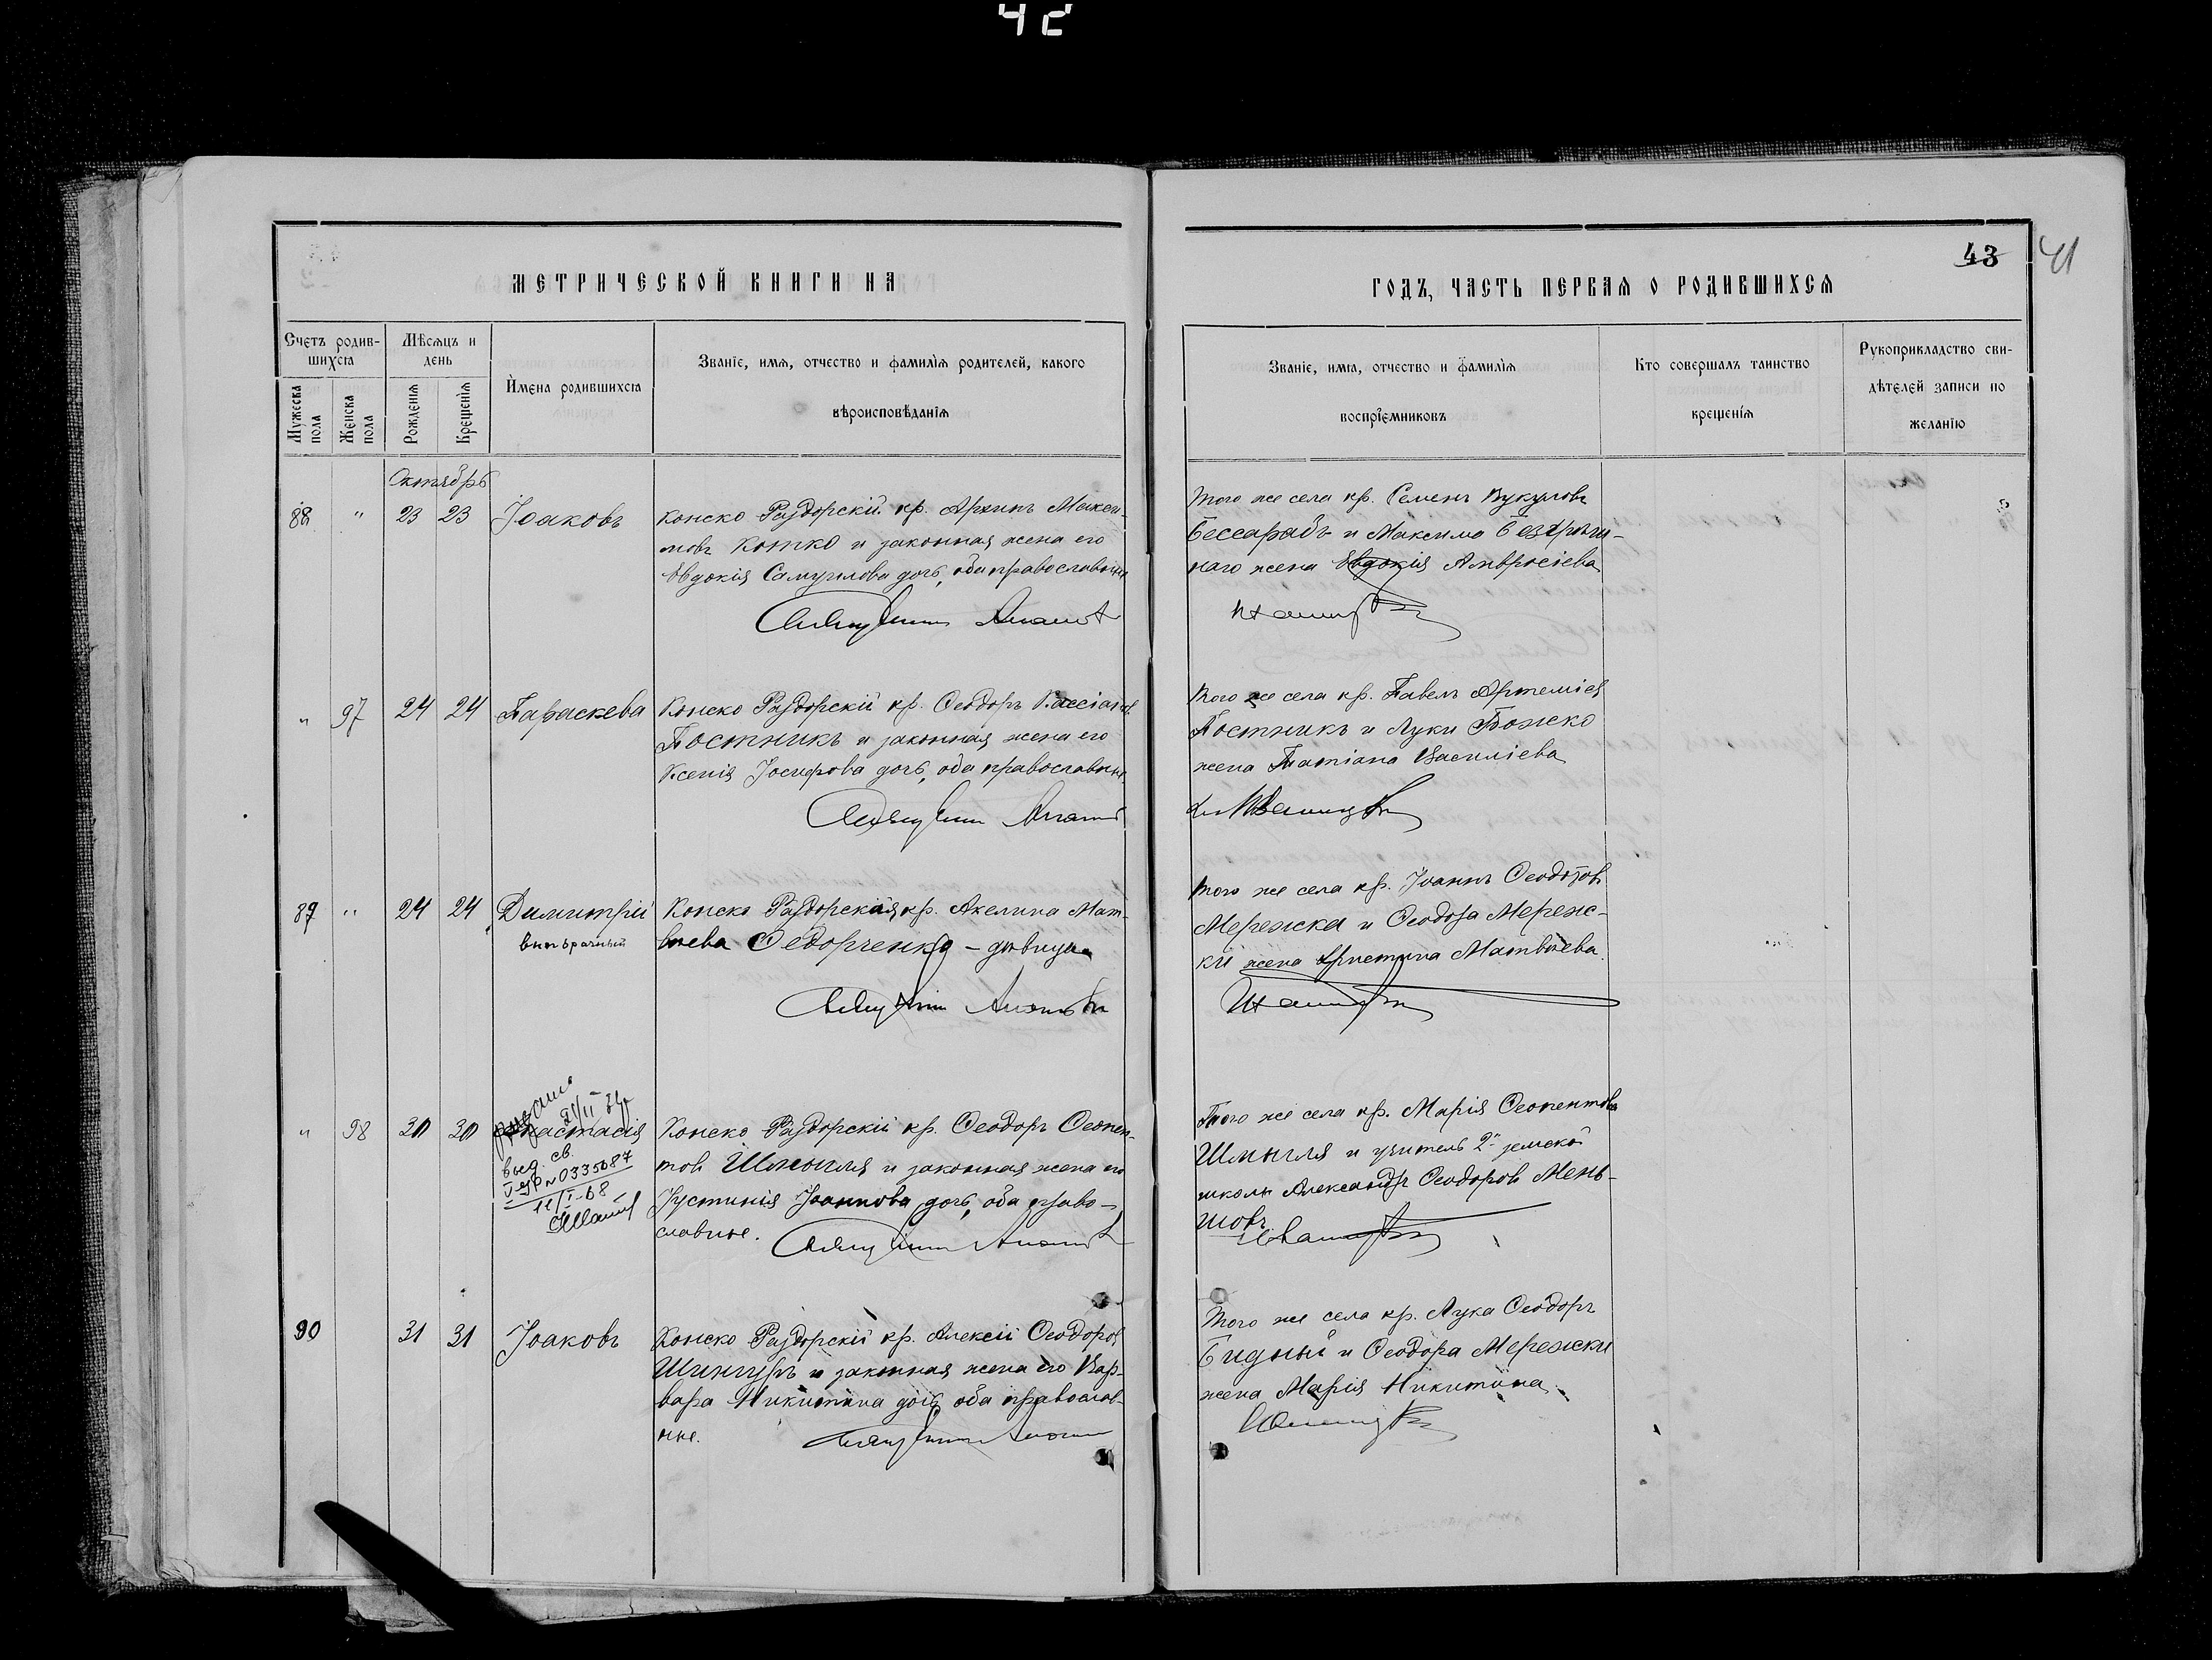 42
МЕТРИЧЕСКОЙ КНИГИ НА
ГОДЪ, ЧАСТЬ ПЕРВАЯ О РОДИВШИХСЯ
43
41
Счетъ родив-
шихся
Мѣсяцъ и
день
Имена родившихся
Званіе, имя, отчество и фамилія родителей, какого
вѣроисповѣданія
Мужеска
пола
Женска
пола
Рожденія
Крещенія
Званіе, имя, отчество и фамилія
воспріемниковъ
Кто совершалъ таинство
крещенія
Рукоприкладство сви-
дѣтелей записи по
желанію
Октябрь
88 " 23 23 Іоаковъ
Конско Раздорскій кр. Архипъ Макси-
мовъ Котко и законная жена его
Евдокія Самуилова дочь, оба православные
Того же села кр. Семенъ Вукуловъ
Бессарабъ и Максима Безкрыш-
наго жена Евдокія Амвросіева
" 97 24 24 Параскева
Конско Раздорскій кр. Ѳеодоръ Кассіановъ
Постникъ и законная жена его
Ксенія Іосифова дочь, оба православные
Того же села кр. Павелъ Артеміев
Постникъ и Луки Божко
жена Татіана Василіева
89 " 24 24 Димитрій
внѣбрачный
Конско Раздорская кр. Акелина Мат-
вѣева Ѳедорченко – дѣвица
Того же села кр. Іоаннъ Ѳеодоров
Мережска и Ѳеодора Мережс-
ки жена Христина Матвѣева
" 98 30 30 Анастасія
выд. св.
V-ЯР № 0335087
11/I-68
Конско Раздорскій кр. Ѳеодоръ Ѳеопен-
товъ Шмыгля и законная жена его
Іустинія Іоаннова дочь, оба право-
славные.
Того же села кр. Марія Ѳеопентова
Шмыгля и учитель 2й земской
школы Александръ Ѳеодоровъ Мень-
шовъ
90 31 31 Іоаковъ
Конско Раздорскій кр. Алексій Ѳеодоров
Шингуръ и законная жена его Вар-
вара Никитина дочь оба православ-
ные.
Того же села кр. Лука Ѳеодоръ
Бидный и Ѳеодора Мережски
жена Марія Никитина